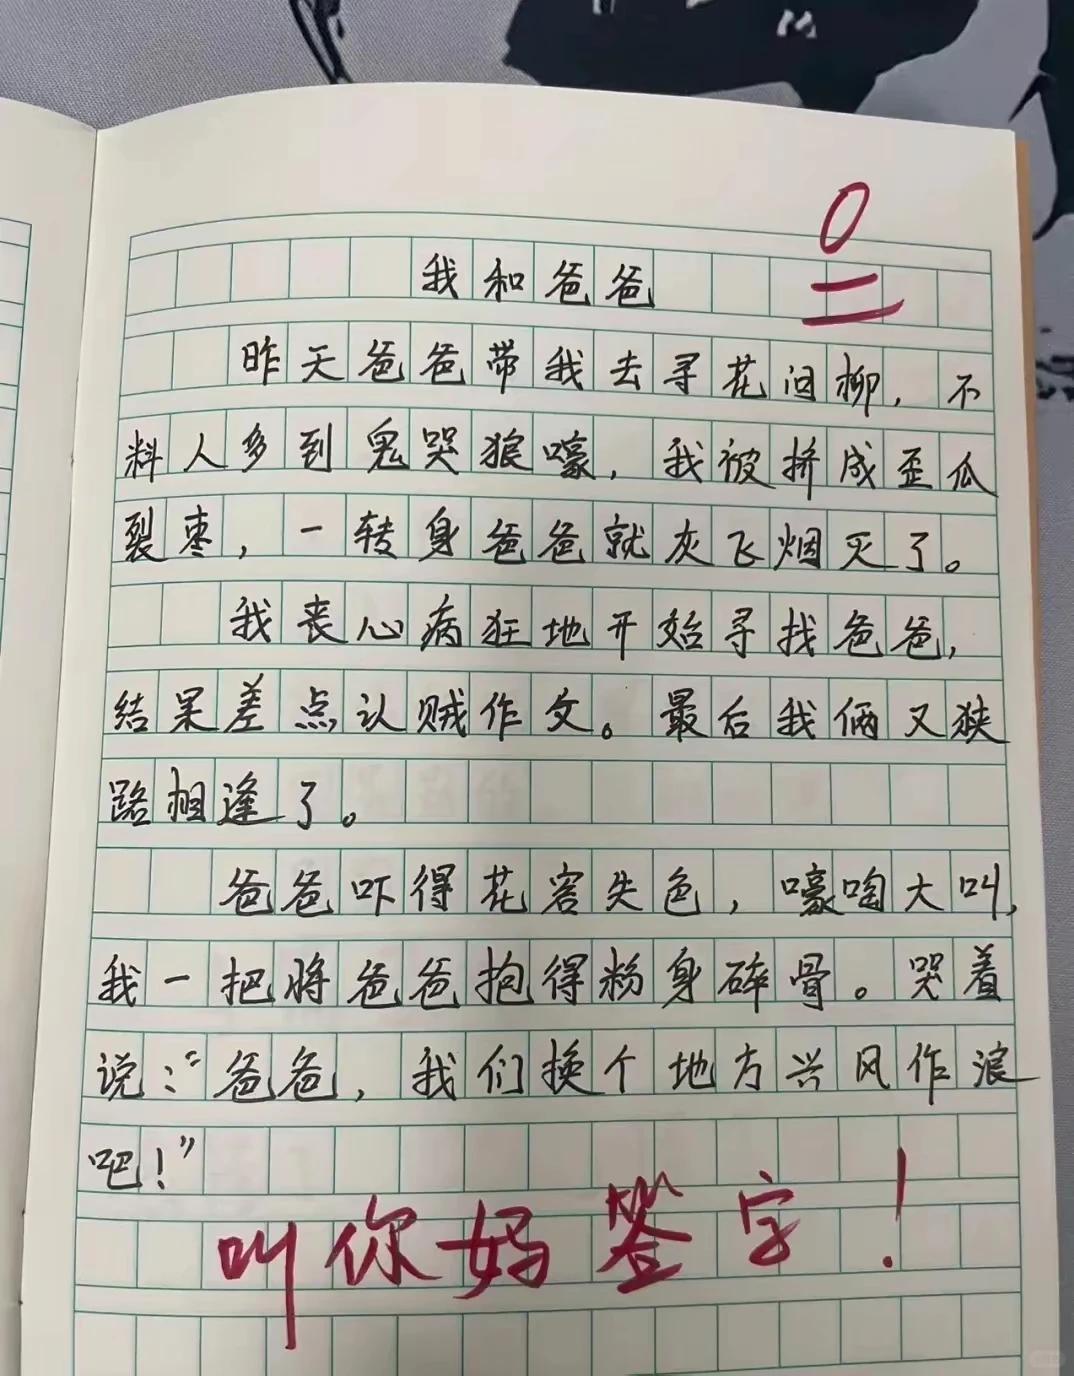 0
我和爸爸
昨天爸爸带我去寻花问柳，不
料人多到鬼哭狼嚎，我被挤成歪瓜
裂枣，一转身爸爸就灰飞烟灭了。
我丧心病狂地开始寻找爸爸，
结果差点认贼作文。最后我俩又狭
路相逢了。
爸爸吓得花容失色，嚎啕大叫，
我一把将爸爸抱得粉身碎骨。哭着
说：“爸爸，我们换个地方兴风作浪
吧！”
叫你妈签字！